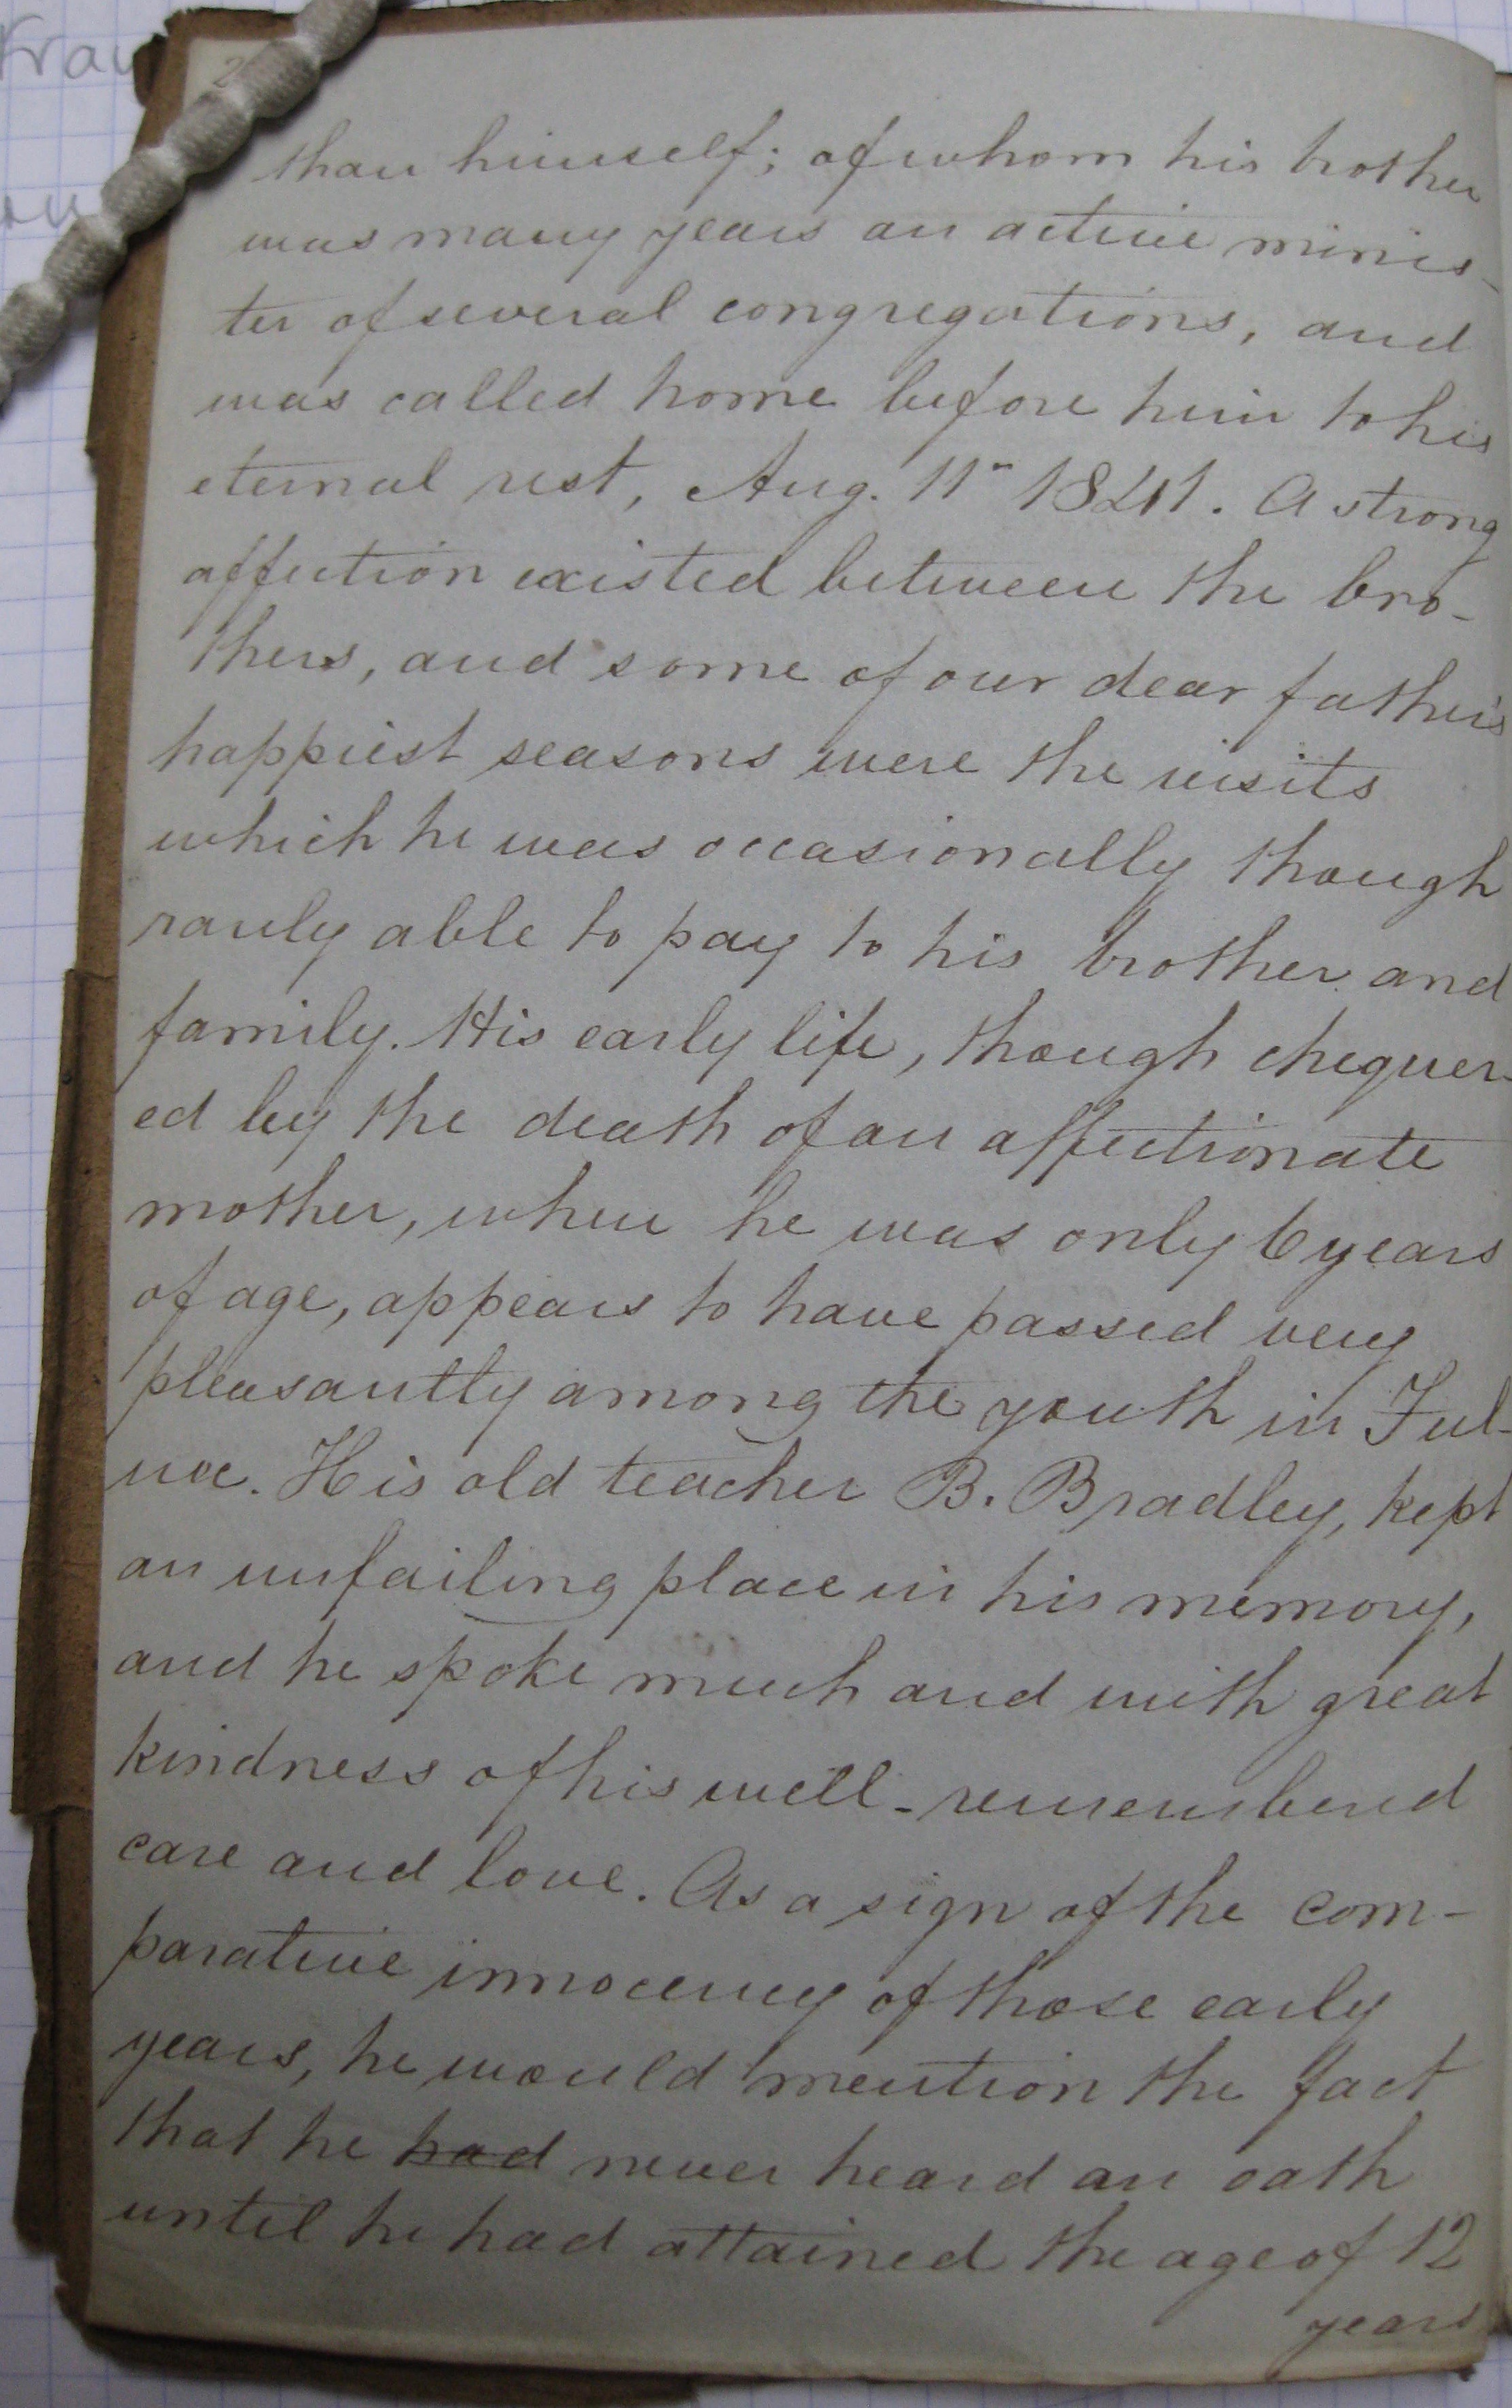 2
than himself; of whom his brother
was many years an active minis-
ter of several congregations, and
was called home before him to his
eternal rest, Aug. 11" 1841. A strong
affection existed between the bro-
thers, and some of our dear father's
happiest seasons were the visits
which he was occasionally though
rarely able to pay to his brother and
family. His early life, though chequer-
ed by the death of an affectionate
mother, when he was only 6 years
of age, appears to have passed very
pleasantly among the youth in Ful-
nec. His old teacher B. Bradley, kept
an unfailing place in his memory,
and he spoke much and with great
kindness of his well-remembered
care and love. As a sign of the com-
parative innocency of those early
years, he would mention the fact
that he had never heard an oath
until he had attained the age of 12
years